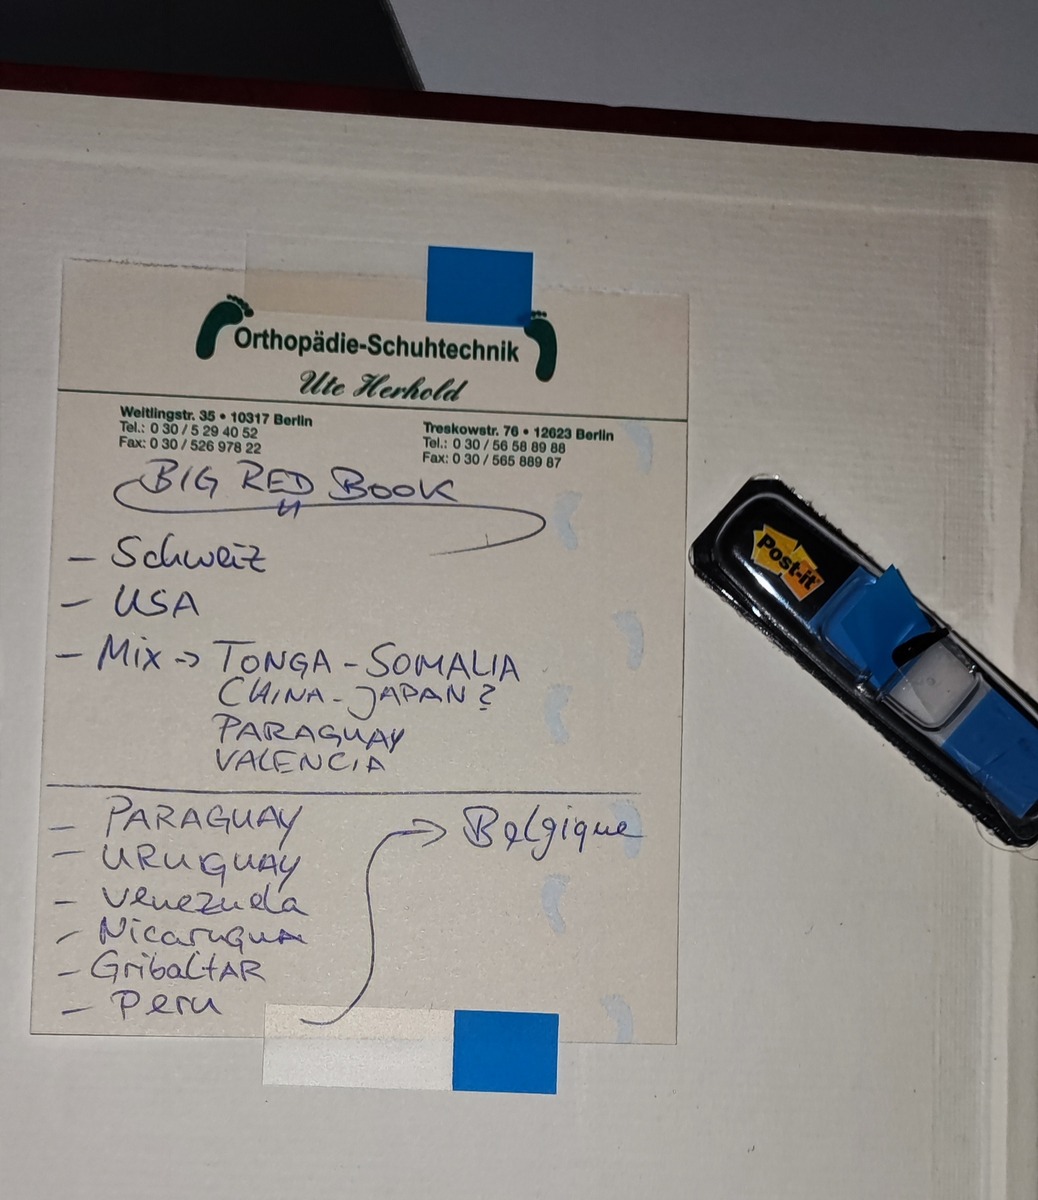 Orthopädie-Schuhtechnik
Ute Herhold
Weitlingstr. 35 • 10317 Berlin
Tel.: 0 30 / 5 29 40 52
Fax: 0 30 / 526 978 22
Treskowstr. 76 • 12623 Berlin
Tel.: 0 30 / 56 58 89 88
Fax: 0 30 / 565 889 87
BIG RED BOOK
- Schweiz
- USA
- Mix -> TONGA - SOMALIA
CHINA - JAPAN?
PARAGUAY
VALENCIA
- PARAGUAY
- URUGUAY
- Venezuela
- Nicaragua
- GribaltAR
- Peru
-> Belgique
Post-it